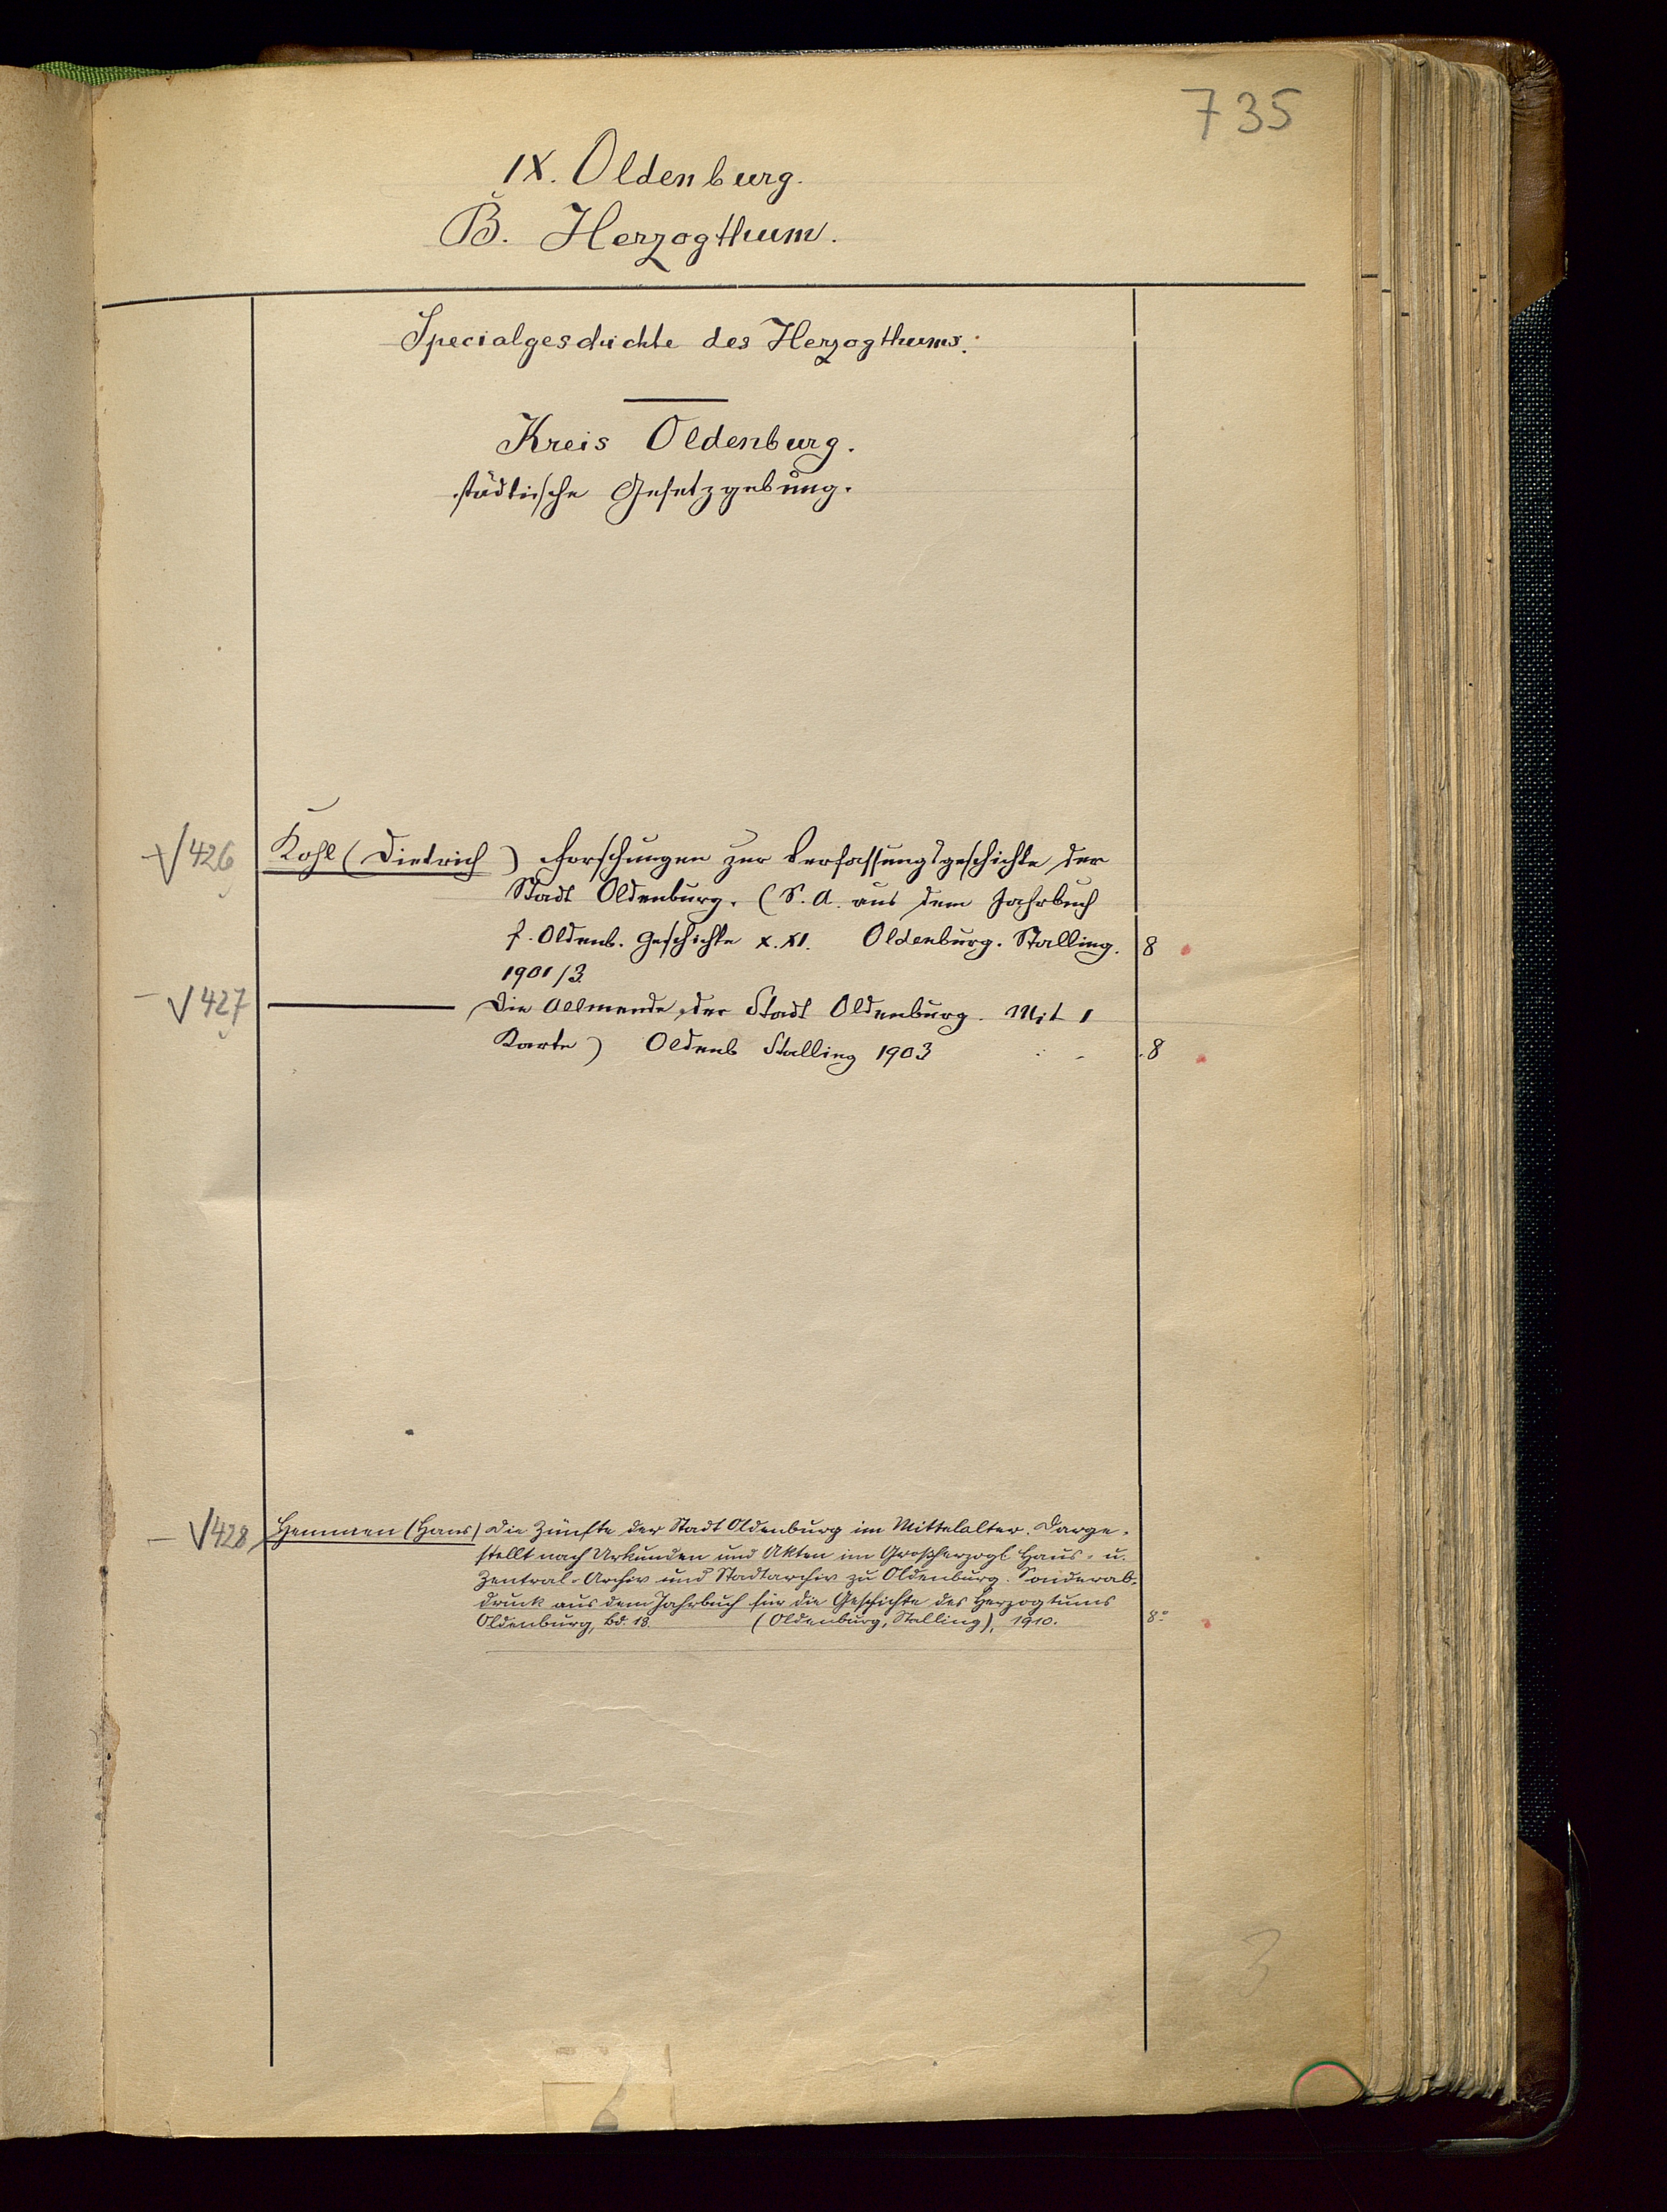 735
IX. Oldenburg.
B. Herzogthum.
Specialgeschichte des Herzogthums.
Kreis Oldenburg.
städtische Gesetzgebung.
√426 Kohl (Dietrich) Forschungen zur Verfassungsgeschichte der
Stadt Oldenburg. (S. A. aus dem Jahrbuch
f. Oldenb. Geschichte X. XI. Oldenburg. Stalling. 8
1901/3.
— √427 ——— Die Allmende der Stadt Oldenburg. Mit 1
Karte) Oldenb Stalling 1903 8
— √428 Hemmen (Hans) Die Zünfte der Stadt Oldenburg im Mittelalter. Darge-
stellt nach Urkunden und Akten im Großherzogl. Haus- u.
Zentral-Archiv und Stadtarchiv zu Oldenburg. Sonderab-
druck aus dem Jahrbuch für die Geschichte des Herzogtums
Oldenburg, Bd. 18. (Oldenburg, Stalling), 1910. 8°
3